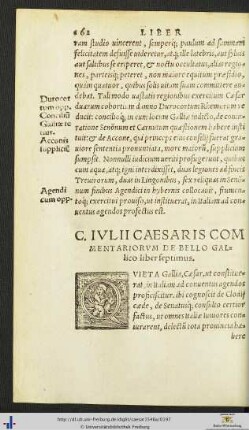 662 LIBER
tam studio uincerent, semperq; paulum ad summam
felicitatem defuisse uideretur, atq; ille latebris, aut syluis,
aut saltibus se eriperet, & noctu occultatus, alias regio-
nes, partesq; peteret, non maiore equitum præsidio,
quàm quatuor, quibus solis uitam suam committere au-
debat. Tali modo uastatis regionibus exercitum Cæsar
duarum cohortium damno Durocortum Rhemorum re-
ducit: concilioq; in eum locum Galliæ indicto, de coniu-
ratione Senonum et Carnutum quæstionem habere insti
tuit: & de Accone, qui princeps eius consilij fuerat gra-
uiore sententia pronuntiata, more maiorum, supplicium
sumpsit. Nonnulli iudicium ueriti profugerunt, quibus
cum aqua, atq; igni interdixisset, duas legiones ad fines
Treuirorum, duas in Lingonibus, sex reliquas in Seno-
num finibus Agendici in hybernis collocauit, frumen-
toq; exercitui prouiso, ut instituerat, in Italiam ad con
uentus agendos profectus est.
Durocor
tum opp.
Conciliũ
Galliæ in
Acconis
suppliciũ
Agendi
cum opp.
C. IVLII CAESARIS COM
MENTARIORVM DE BELLO GAL-
lico liber septimus.
QVIETA Gallia, Cæsar, ut constitue
rat, in Italiam ad conuentus agendos
proficiscitur. ibi cognoscit de Clodij
cæde, de Senatusq; consulto certior
factus, ut omnes Italiæ iuniores con-
iurarent, delectũ tota prouincia ha-
bere
http://dl.ub.uni-freiburg.de/diglit/caesar1543
© Universitätsbibliothek Freiburg